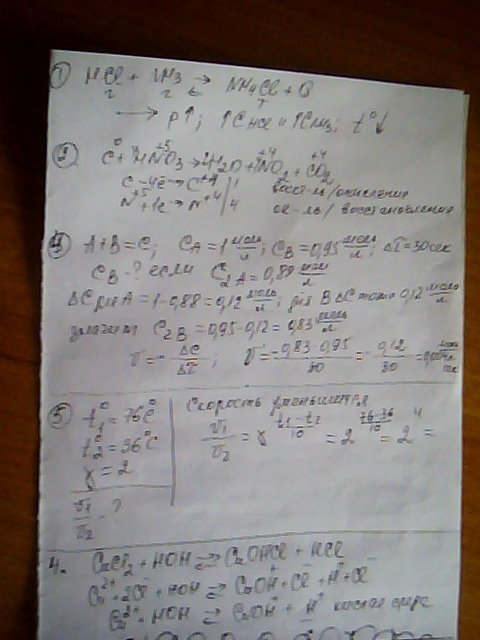 ① HCl + NH3 ⇄ NH4Cl + Q
г г т
→ p↑; ↑C HCl и ↑C NH3; t°↓
② C⁰ + 4HN⁺⁵O3 → 2H2O + 4NO2 + C⁺⁴O2
C⁰ - 4e → C⁺⁴ | 1 восст-ль / окисление
N⁺⁵ + 1e → N⁺⁴ | 4 ок-ль / восстановление
A + B = C; CA = 1 моль/л; CB = 0,95 моль/л; Δτ = 30 сек
CB - ? если C2A = 0,88 моль/л
ΔC для A = 1 - 0,88 = 0,12 моль/л; для B ΔC тоже 0,12 моль/л
значит C2B = 0,95 - 0,12 = 0,83 моль/л
V = - ΔC/Δτ; V = - 0,83 - 0,95/30 = - 0,12/30 =
⑤ t1° = 76°C
t2° = 36°C
γ = 2
V1/V2 - ?
Скорость уменьшится
V1/V2 = γ^(t1-t2/10) = 2^(76-36/10) = 2^4 =
4. CuCl2 + HOH ⇄ CuOHCl + HCl
Cu²⁺ + 2Cl⁻ + HOH ⇄ CuOH⁺ + Cl⁻ + H⁺ + Cl⁻
Cu²⁺ + HOH ⇄ CuOH⁺ + H⁺ кислая среда